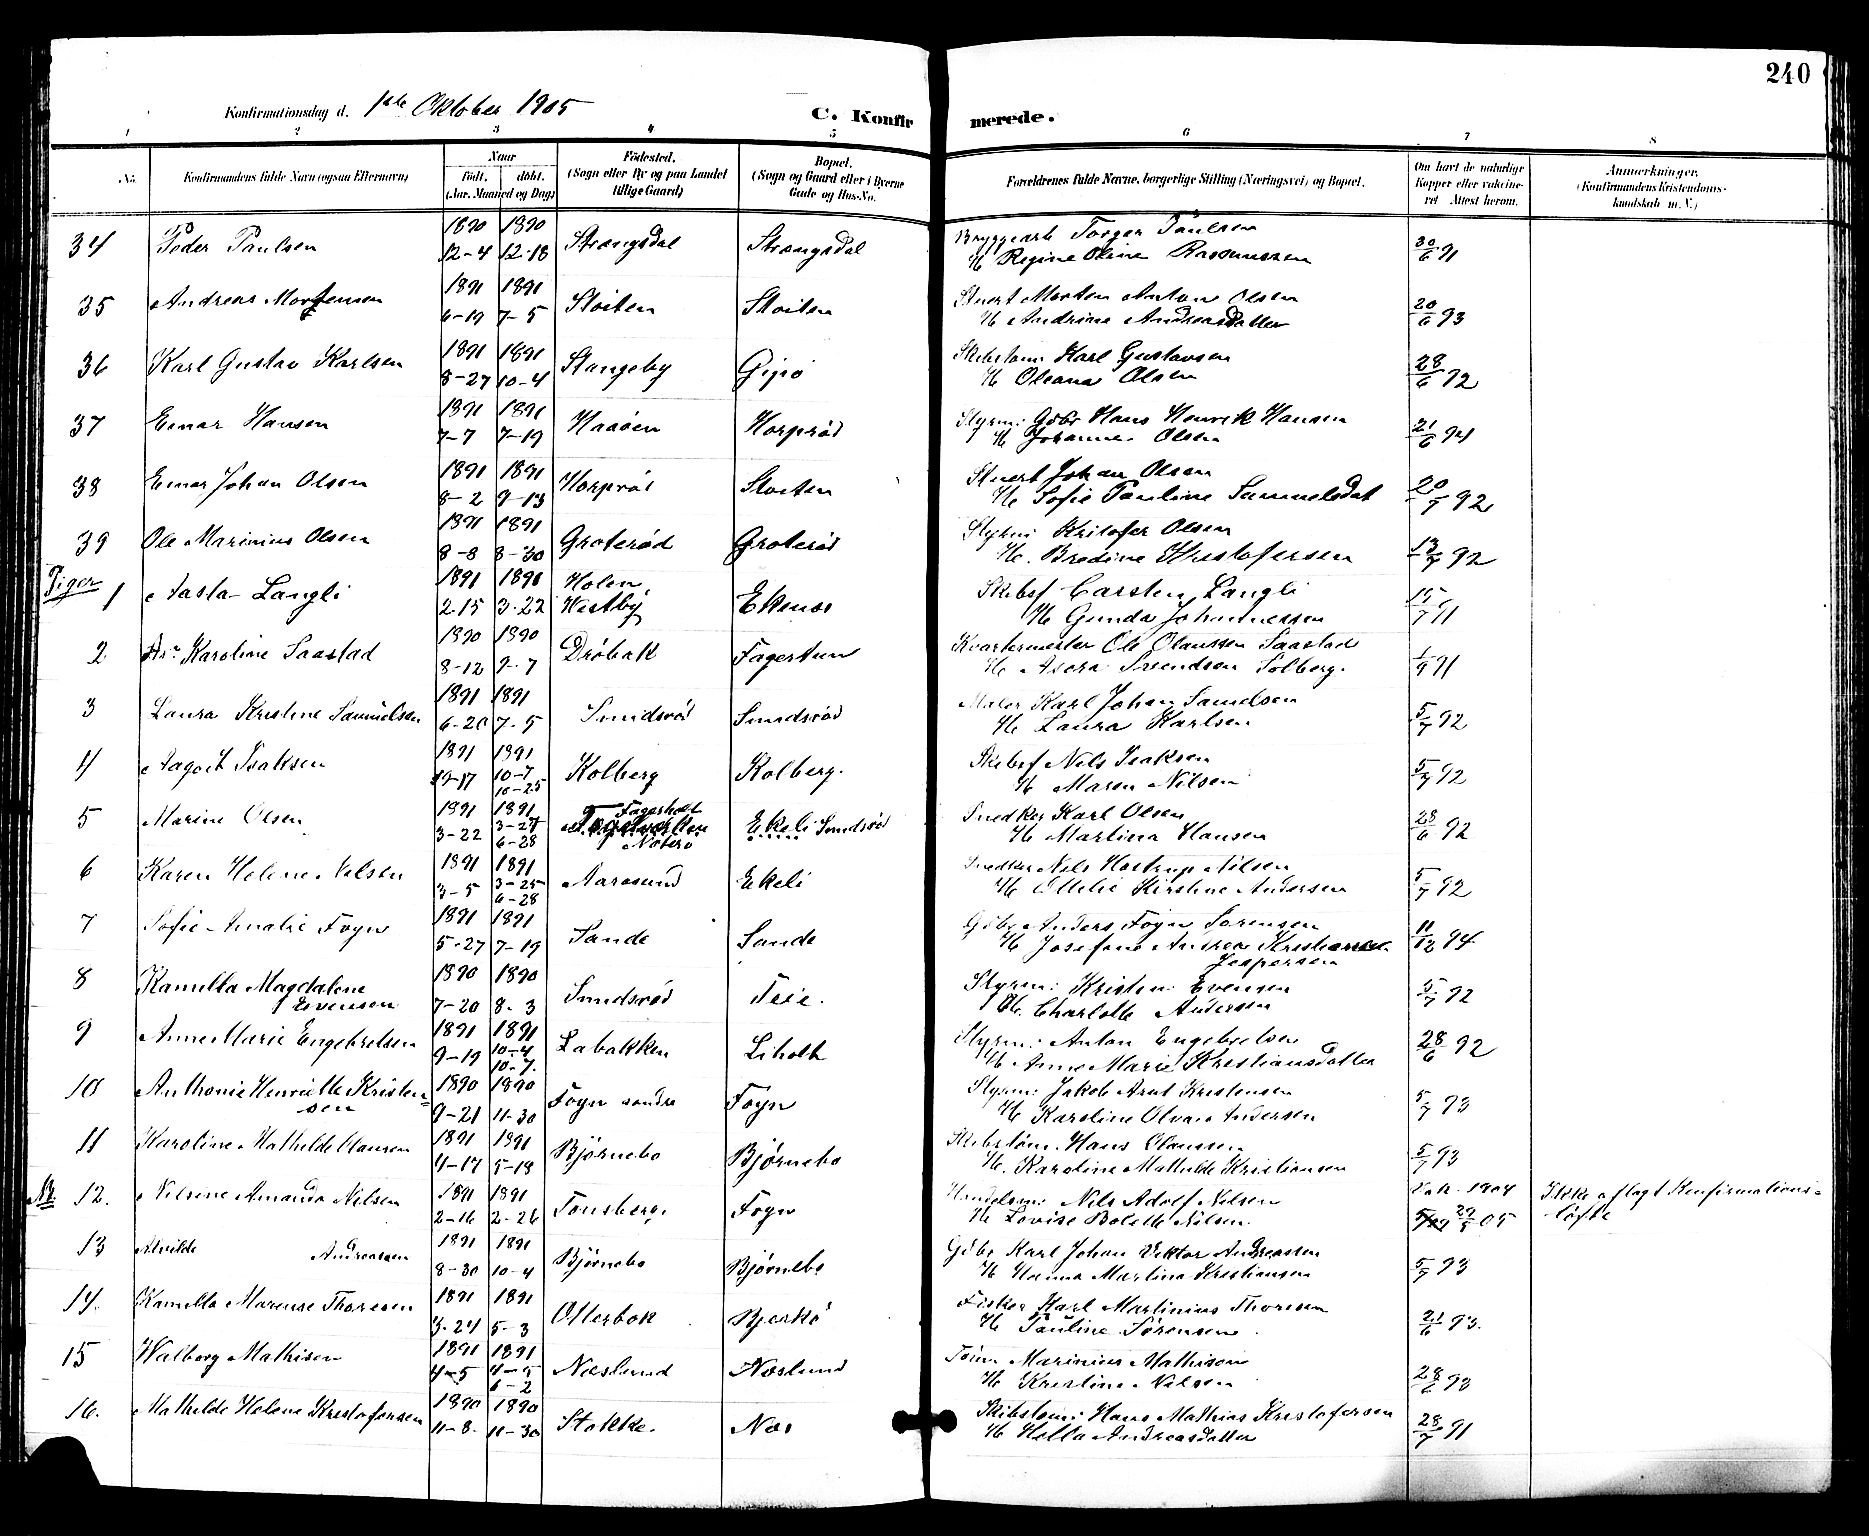 240
Konfirmationsdag d. 1ste Oktober 1905
C. Konfirmerede.
1 2 3 4 5 6 7 8
No.
Konfirmandens fulde Navn (ogsaa Efternavn)
Naar født. døbt. (Aar. Maaned og Dag)
Fødested. (Sogn eller By og paa Landet tillige Gaard)
Bopæl. (Sogn og Gaard eller i Byerne Gade og Hus-No.
Forældrenes fulde Navne, borgerlige Stilling (Næringsvei) og Bopæl.
Om havt de naturlige Kopper eller vaccineret. Attest herom.
Anmærkninger. (Konfirmandens Kristendomskundskab m. V.)
34 Peder Paulsen 1890 12-4 1890 12-18 Strængsdal Strængsdal Bryggearb Torger Paulsen
H Regine Oline Rasmussen 30/6 91
35 Andreas Mortensen 1891 6-19 1891 7-5 Stoiten Stoiten Stuert Morten Anton Olsen
H Andrine Andreasdatter 20/6 93
36 Karl Gustav Karlsen 1891 8-27 1891 10-4 Stangeby Gipø Skibstøm: Karl Gustavsen
H Oleana Olsen 28/6 92
37 Einar Hansen 1891 7-7 1891 7-19 Haaøen Horprød Styrm: Gdbr Hans Henrik Hansen
H Johanne Olsen 21/6 94
38 Einar Johan Olsen 1891 8-2 1891 9-13 Horprød Stoiten Stuert Johan Olsen
H Sofie Pauline Samuelsdat 20/7 92
39 Ole Marinius Olsen 1891 8-8 1891 8-30 Groterød Groterød Styrm: Kristofer Olsen
H. Bredine Kristofersen 13/7 92
Piger
1 Aasta Langli 1891 2-15 1891 3-22 Holen Westby Ekenes Skibsf Carsten Langli
H Gunda Johannessen 15/7 91
2 Karoline Saastad 1890 8-12 1890 9-7 Drøbak Fagertun Kvartermester Ole Olaussen Saastad
H Svendsen Solberg. 1/9 91
3 Laura Kristine Samuelsen 1891 6-20 1891 7-5 Smidsrød Smidsrød Maler Karl Johan Samuelsen
H Laura Karlsen 5/7 92
4 Aagot Isaksen 1891 1891 10-7 10-25 Kolberg Kolberg. Skibsf Nils Isaksen
H Maren Nilsen 5/7 92
5 Marine Olsen 1891 3-22 1891 3-27 6-28 Fagerholt Nøterø Ekeli Smidsrød Snedker Karl Olsen
H Martina Hansen 28/6 92
6 Karen Helene Nilsen 1891 3-5 1891 3-25 6-28 Aarøsund Ekeli Snedker Nils Hostrup Nilsen
H Ottilie Kirstine Andersen 5/7 92
7 Sofie Amalie Føyn 1891 5-27 1891 7-19 Sande Sande Gdbr Anders Føyn Sørensen
H Josefine Andrea Kristianse Jespersen 11/12 94
8 Kamilla Magdalene Evensen 1890 7-20 1890 8-3 Smidsrød Teie. Styrm: Kristen Evensen
H. Charlotte Andersen 5/7 92
9 Anne Marie Engebretsen 1891 9-19 1891 10-4 10-7. Labakken Liholt Styrm: Anton Engebretsen
H Anne Marie Kristiansdatter 28/6 92
10 Anthonie Henriette Kristensen 1890 9-21 1890 11-30 Føyn søndre Føyn Styrm: Jakob Arnt Kristensen
H Karoline Olvar Andersen 5/7 93
11 Karoline Mathilde Olausen 1891 4-17 1891 5-18 Bjørnebo Bjørnebo Skibstøm. Hans Olaussen
H. Karoline Mathilde Kristiansen 5/7 93
12. Nilsine Amanda Nilsen 1891 2-16 1891 2-26 Tønsberg. Føyn Handelsm: Nils Adolf Nilsen
H Lovise Bolette Nilsen. 1904 29/5 05 Ikke aflagt Konfirmationsløfte
13 Alvilde Andreassen 1891 8-30 1891 10-4 Bjørnebo Bjørnebo Gdbr Karl Johan Viktor Andreassen
H Hanna Martina Kristiansen 5/7 93
14. Kamilla Marense Thoresen 1891 3-24 1891 5-3 Otterbæk Bjerkø Fisker Karl Martinius Thoresen
H Pauline Sørensen. 21/6 93.
15 Walborg Mathisen 1891 4-5 1891 4-5 6-2 Næslund Næslund Tøm Marinius Mathisen
H Kristine Nilsen 28/6 93
16. Mathilde Helene Kristofersen 1890 11-8. 1890 11-30 Stokke. Næs Skibstøm: Hans Mathias Kristofersen
H Hella Andreasdatter 28/7 91